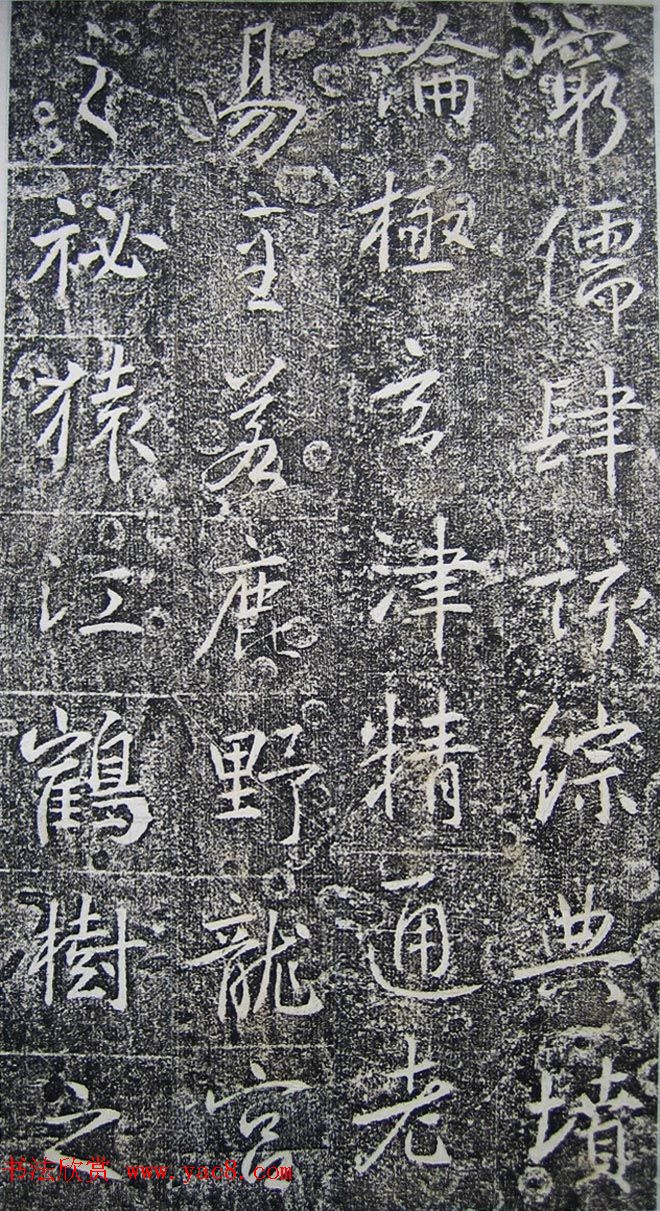 窮儒肆該綜典墳
論極玄津精通老
易至若鹿野龍宮
之祕猿江鶴樹之
书法欣赏 www.yac8.com